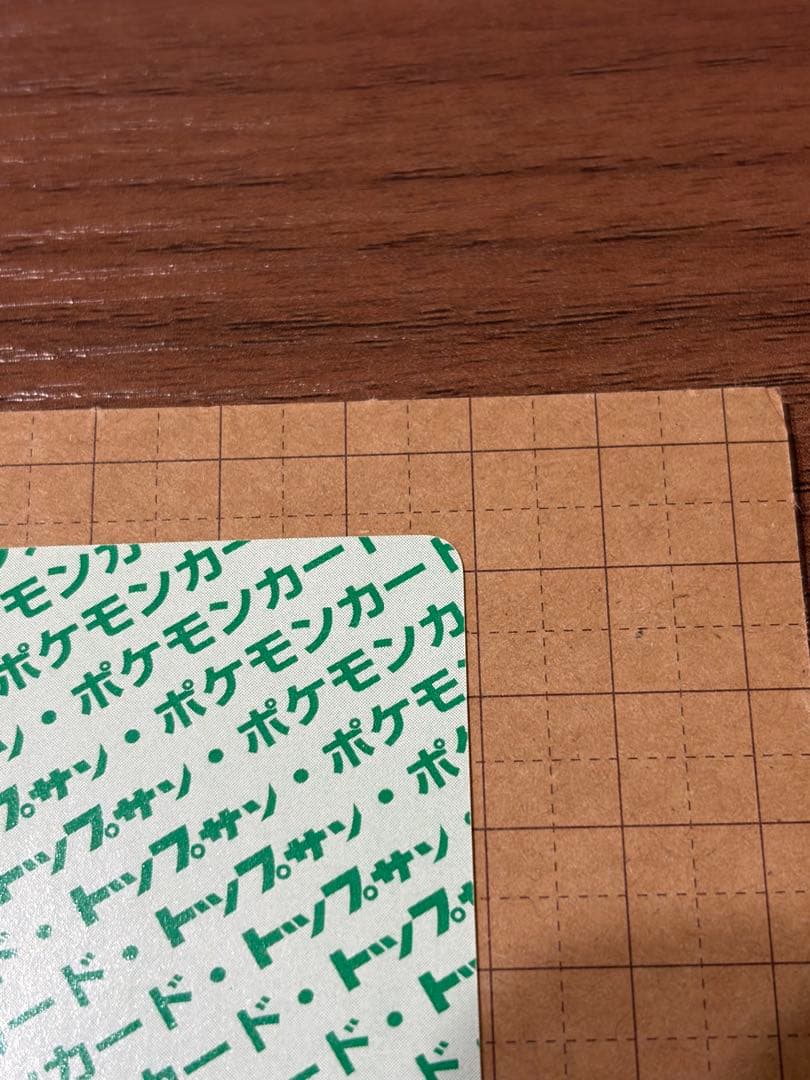 モンカ
ポケモンカー
ン・ポケモンカー
プサン・ポケモンカード
トップサン・ポケモンカ
ド・トップサン・ポケモ
ード・トップサン・ポ
カード・トップサン・
カード・トップサ
ード・トッ
ド